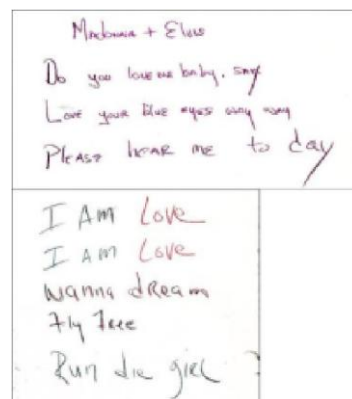 Madonna + Elvis
Do you love me baby, say
Love your blue eyes away away
PLEASE hEAR ME to day
I Am Love
I Am Love
wanna dReam
Fly Free
Run die giRl